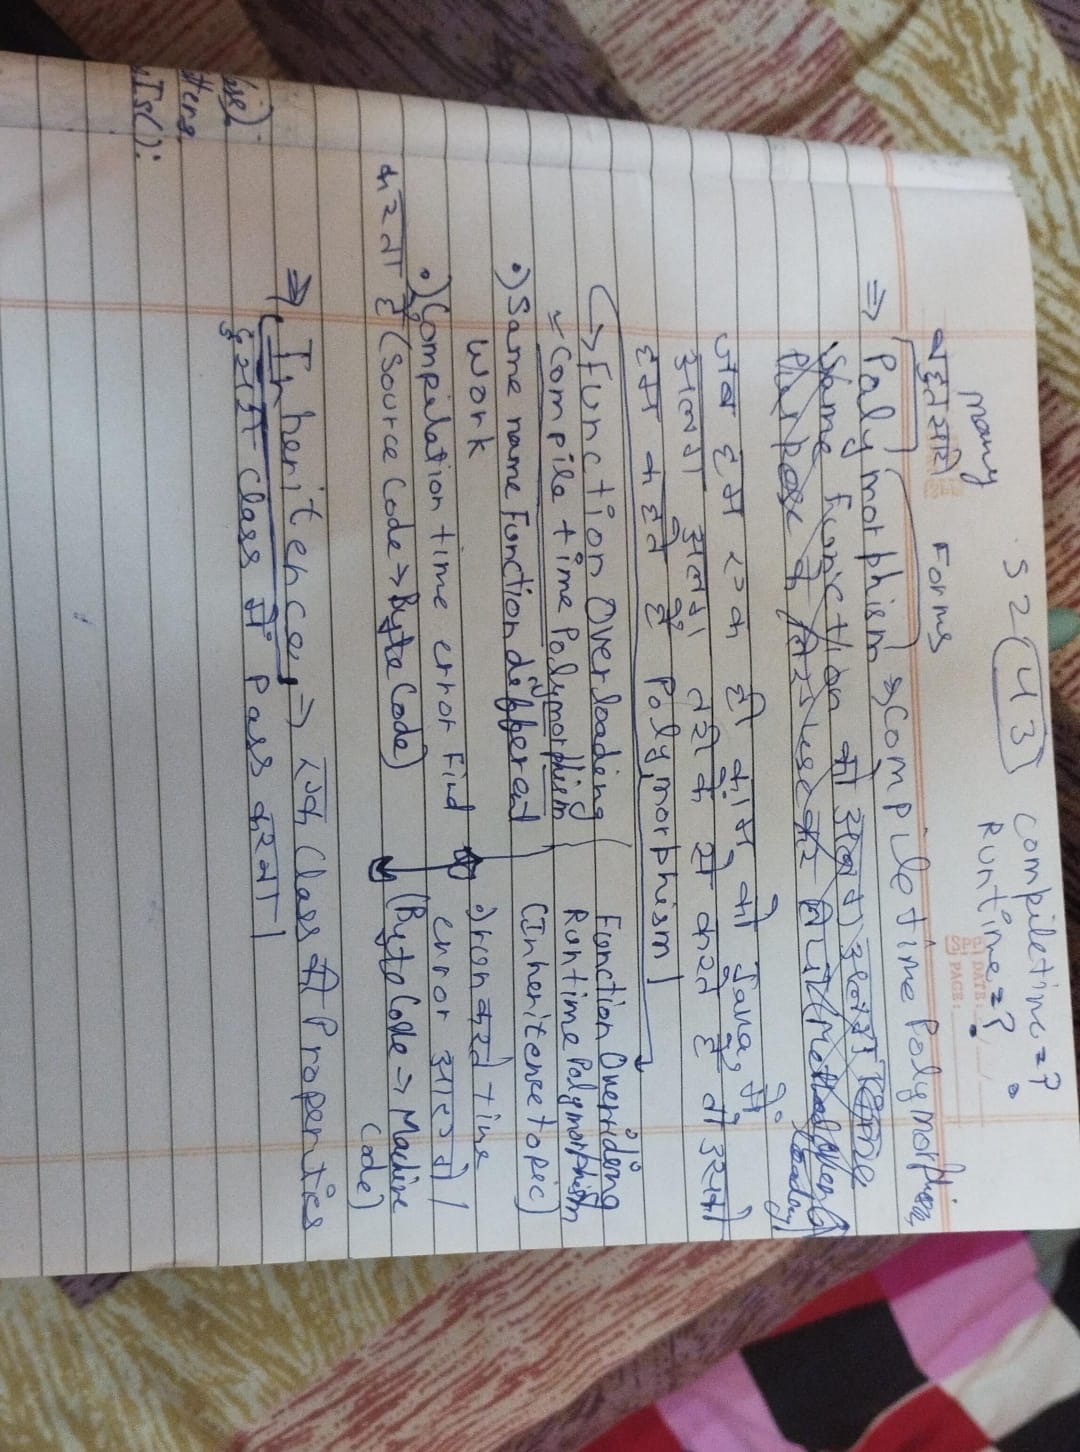 S2 (43) Compiletime=?
Runtime=?
DATE:
PAGE:
many
बहुत सारे Forms
⇒ Polymorphism → Compile time Polymorphism
Same Function को अलग अलग
Purpose के लिए use कर लिया (Method Over
loading)
जब हम एक ही काम को Java में
अलग अलग तरीकें से करते है तो उसको
हम कहते है Polymorphism।
Function Overloading
Compile time Polymorphism
•) Same name Function different
Work
•) Compilation time error Find
करता है (Source Code → Byte Code)
Function Overriding
Runtime Polymorphism
(Inheritence topic)
•) run करते time
error आएगी।
(Byte Code → Machine
Code)
⇒ Inheritence → एक Class की Properties
दुसरी Class में Pass करना।
Is():